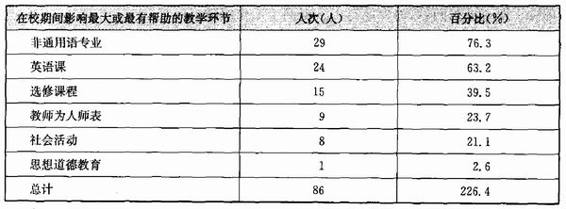 在校期间影响最大或最有帮助的教学环节 人次(人) 百分比(%)
非通用语专业 29 76.3
英语课 24 63.2
选修课程 15 39.5
教师为人师表 9 23.7
社会活动 8 21.1
思想道德教育 1 2.6
总计 86 226.4